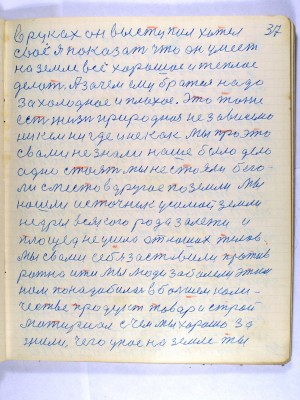 37
в руках он выступил хотел
своё я показат что он умеет
на земле всё хорошое и теплое
делит. А зачем ему братся надо
за холодное и плохое. Это то не
ест жизн природная не зависемо
никем ни где и не как. Мы про это
с вами не знали наше было дело
одно стоят мы не стояли бего-
ли с место в другое по земли. Мы
нашли источник у самой земли
недры всякого рода залежи и
площед не ушло от наших
Мы с вами себя заставили против
ратно ити мы люди заболели этим
нам понадобилас в болшем коли-
честве продукт товар и строй
материал с чем мы хорошо за
жили, чего
на земле